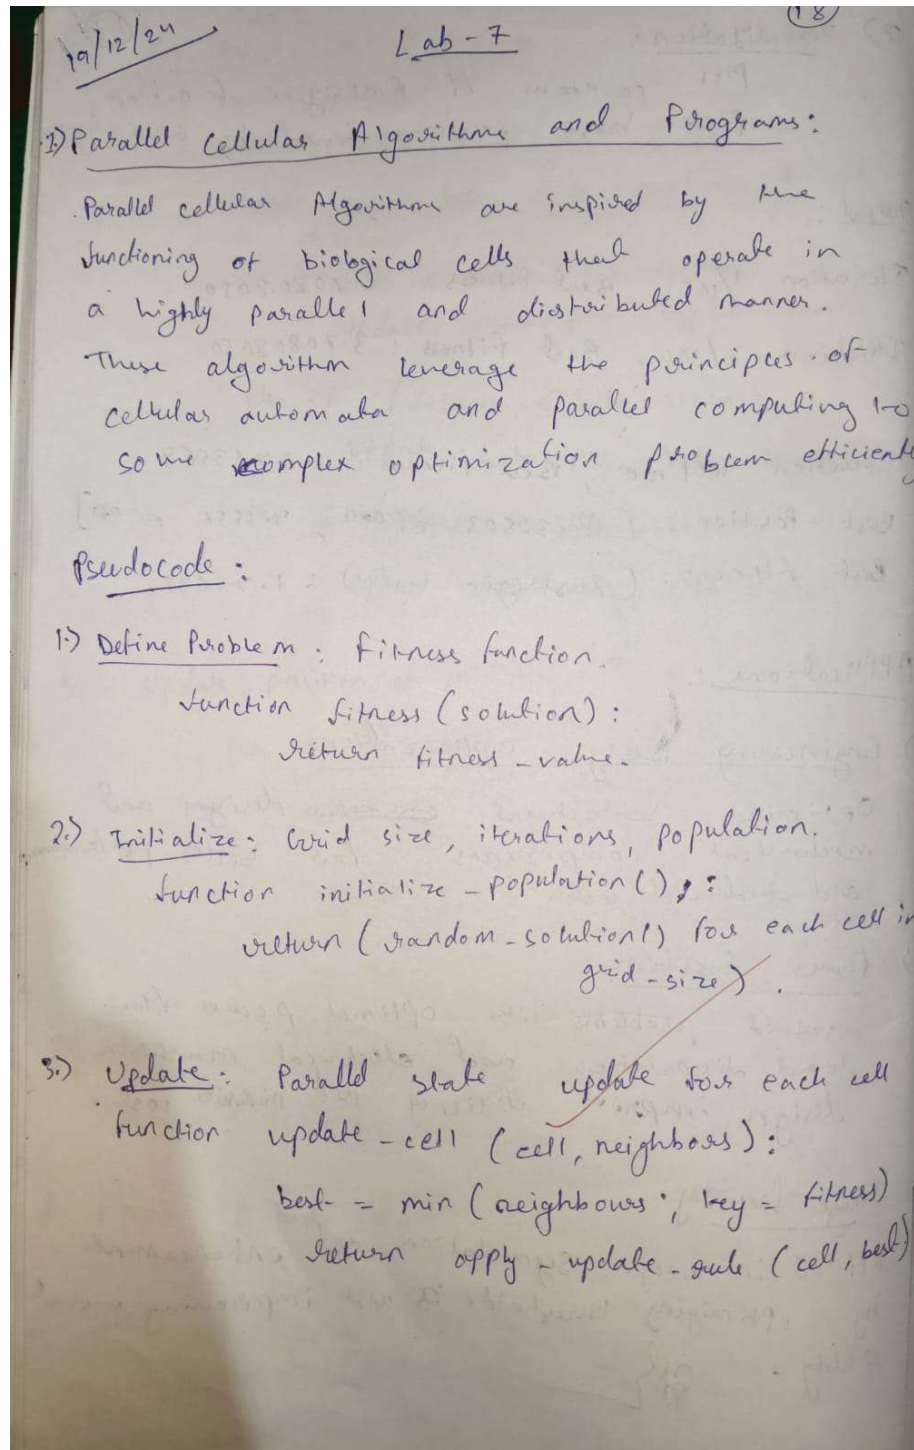 18
19/12/24
Lab-7
1.) Parallel Cellular Algorithms and Programs:
Parallel cellular Algorithms are inspired by the
functioning of biological cells that operate in
a highly parallel and distributed manner.
These algorithm leverage the principles of
cellular automata and parallel computing to
some complex optimization problem efficiently
Pseudocode:
1.) Define Problem: Fitness function.
function fitness (solution):
return fitness-value.
2.) Initialize: Grid size, iterations, population.
function initialize-population():
return (random-solution() for each cell in
grid-size).
3.) Update: Parallel state update for each cell
function update-cell (cell, neighbors):
best = min (neighbours, key = fitness)
return apply-update-rule (cell, best)